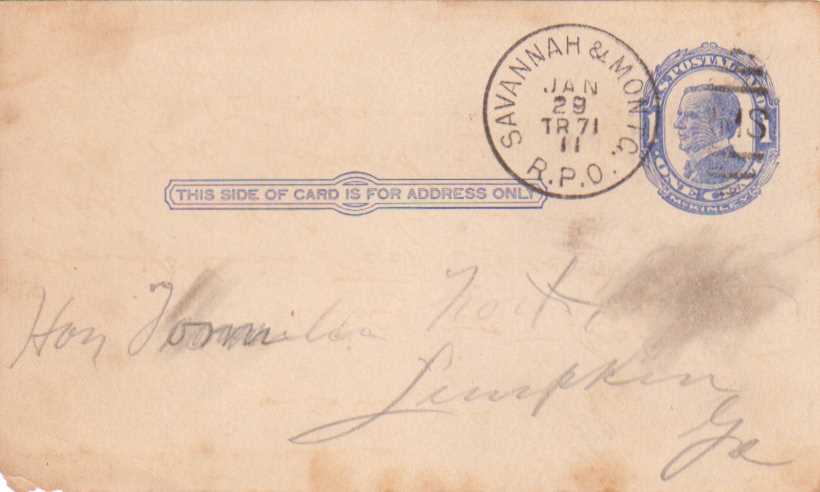 SAVANNAH & MONTG.
JAN
29
TR 71
11
R.P.O.
U.S. POSTAL CARD
RMS
1
ONE CENT
McKINLEY
THIS SIDE OF CARD IS FOR ADDRESS ONLY
Hon
Lumpkin
Ga